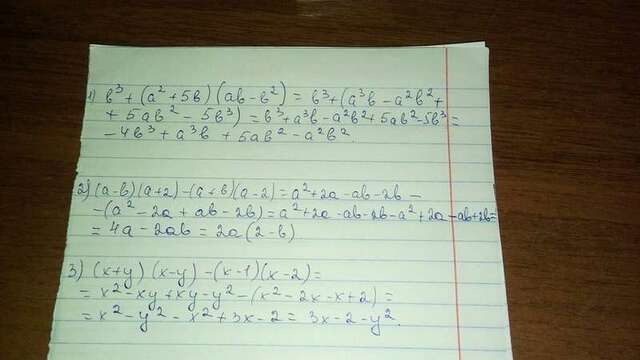 1) b³ + (a² + 5b) (ab - b²) = b³ + (a³b - a²b² +
+ 5ab² - 5b³) = b³ + a³b - a²b² + 5ab² - 5b³ =
- 4b³ + a³b + 5ab² - a²b².
2) (a-b)(a+2) - (a+b)(a-2) = a² + 2a - ab - 2b -
- (a² - 2a + ab - 2b) = a² + 2a - ab - 2b - a² + 2a - ab + 2b =
= 4a - 2ab = 2a (2-b)
3) (x+y) (x-y) - (x-1)(x-2) =
= x² - xy + xy - y² - (x² - 2x - x + 2) =
= x² - y² - x² + 3x - 2 = 3x - 2 - y².